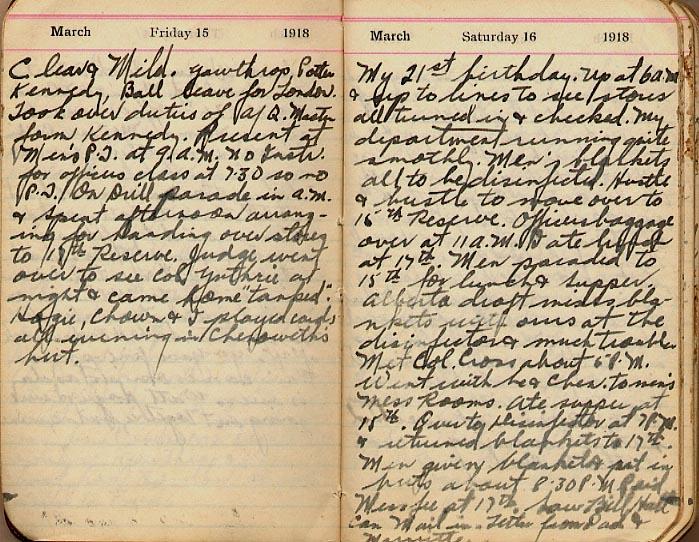 March Friday 15 1918
C leave Mild. Gawthrop, Potter
Kennedy, Ball leave for London.
Took over duties of A/Q. Master
form Kennedy. Present at
Men's P.T. at 9 A.M. no Instr.
for officers class at 7:30 so no
P.T. On Drill parade in a.m.
& spent afternoon arrang-
ing for handing over stores
to 19th Reserve. Judge went
over to see Col Guthrie at
night & came home "tanked".
Hagie, Chown & I played cards
all evening in Chenowiths
hut.
March Saturday 16 1918
My 21st birthday. Up at 6 a.m.
& up to lines to see stores
all turned in & checked. My
department running quite
smothly. Men's blankets
all to be disinfected. Hustle
& bustle to move over to
15th Reserve. Officers baggage
over at 11 A.M. I ate lunch
at 17th. Men paraded to
15th for lunch & supper.
Alberta draft mixes bla-
nkets with ours at the
disinfector & much trouble.
Met Col. Cross about 5 P.M.
Went with he & Chen. to men's
Mess Rooms. Ate supper at
15th. Over to Disinfector at 7 P.M.
& returned blankets to 17th.
Men given blankets & put in
huts about 8.30 P.M. Paid
Mess fee at 17th. Saw Bill Hall
Can Mail in. Letter from Dad &